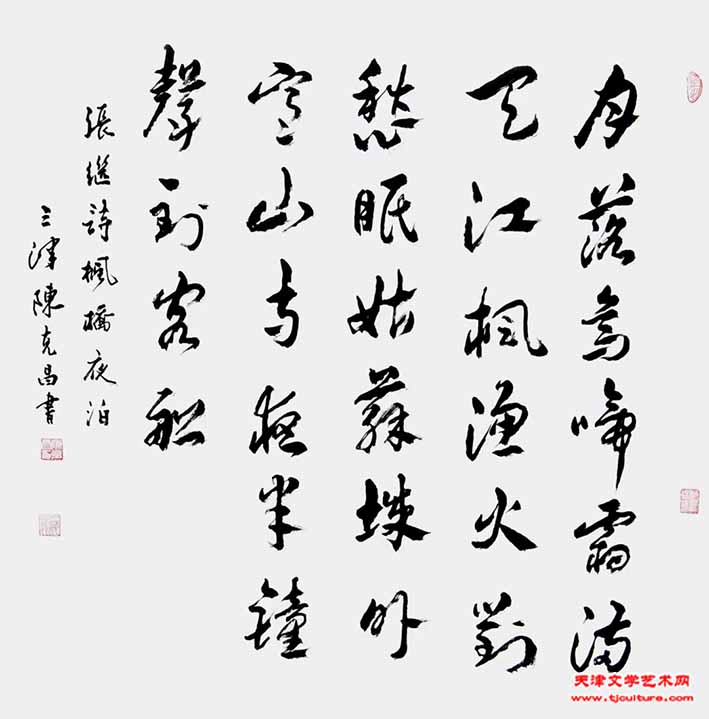 月落烏啼霜滿
天江楓漁火對
愁眠姑蘇城外
寒山寺夜半鐘
聲到客船
張繼詩楓橋夜泊
三津陳克昌書
天津文学艺术网
www.tjculture.com